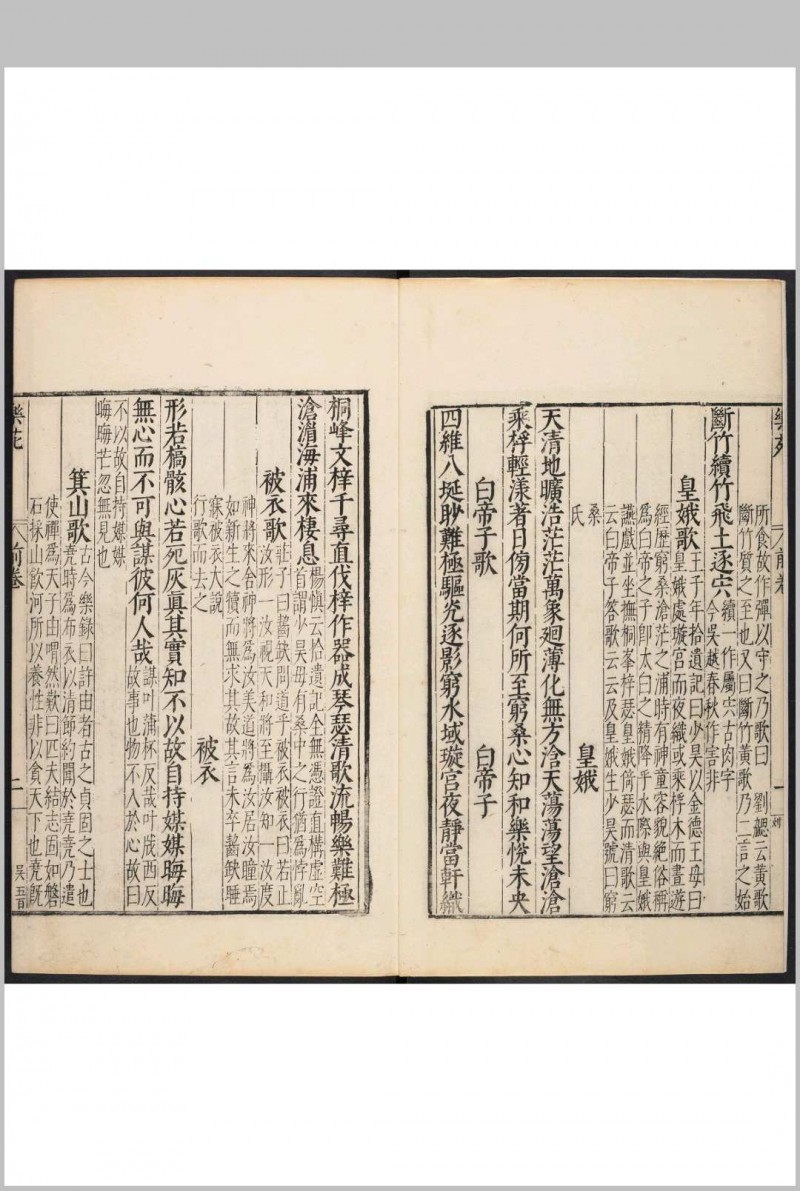 樂苑 前卷 一
所食故作彈以守之乃歌曰 劉勰云黃歌
斷竹質之至也又曰斷竹黃歌乃二言之始
斷竹續竹飛土逐宍 續一作屬宍古肉字
今吳越春秋作害非
皇娥歌 王子年拾遺記曰少昊以金德王母曰
皇娥處璇宮而夜織或乘桴木而晝遊
經歷窮桑滄茫之浦時有神童容貌絶俗稱
爲白帝之子即太白之精降乎水際與皇娥
讌戲並坐撫桐峯梓瑟皇娥倚瑟而清歌云
云白帝子答歌云云及皇娥生少昊號曰窮
桑
氏
皇娥
天清地曠浩茫茫萬象廻薄化無方浛天蕩蕩望滄滄
乘桴輕漾著日傍當期何所至窮桑心知和樂悅未央
白帝子歌 白帝子
四維八埏眇難極驅光逐影窮水域璇宮夜靜當軒織
桐峰文梓千尋直伐梓作器成琴瑟清歌流暢樂難極
滄湄海浦來棲息 楊愼云拾遺記全無憑證直構虛空
首謂少昊母有桑中之行猶爲悖亂
被衣歌 莊子曰齧缺問道乎被衣被衣曰若正
汝形一汝視天和將至攝汝知一汝度
神將來舍神將爲汝美道將爲汝居汝瞳焉
如新生之犢而無求其故其言未卒齧缺睡
寐被衣大說
行歌而去之
被衣
形若槁骸心若死灰眞其實知不以故自持媒媒晦晦
無心而不可與謀彼何人哉 謀叶蒲杯反哉叶戕西反
故事也物不入於心故曰
不以故自持媒媒
晦晦芒忽無見也
箕山歌 古今樂錄曰許由者古之貞固之士也
堯時爲布衣以清節約聞於堯堯乃遣
使禪爲天子由喟然歎曰匹夫結志固如磐
石採山飲河所以養性非以貪天下也堯旣
樂苑 前卷 二 吳